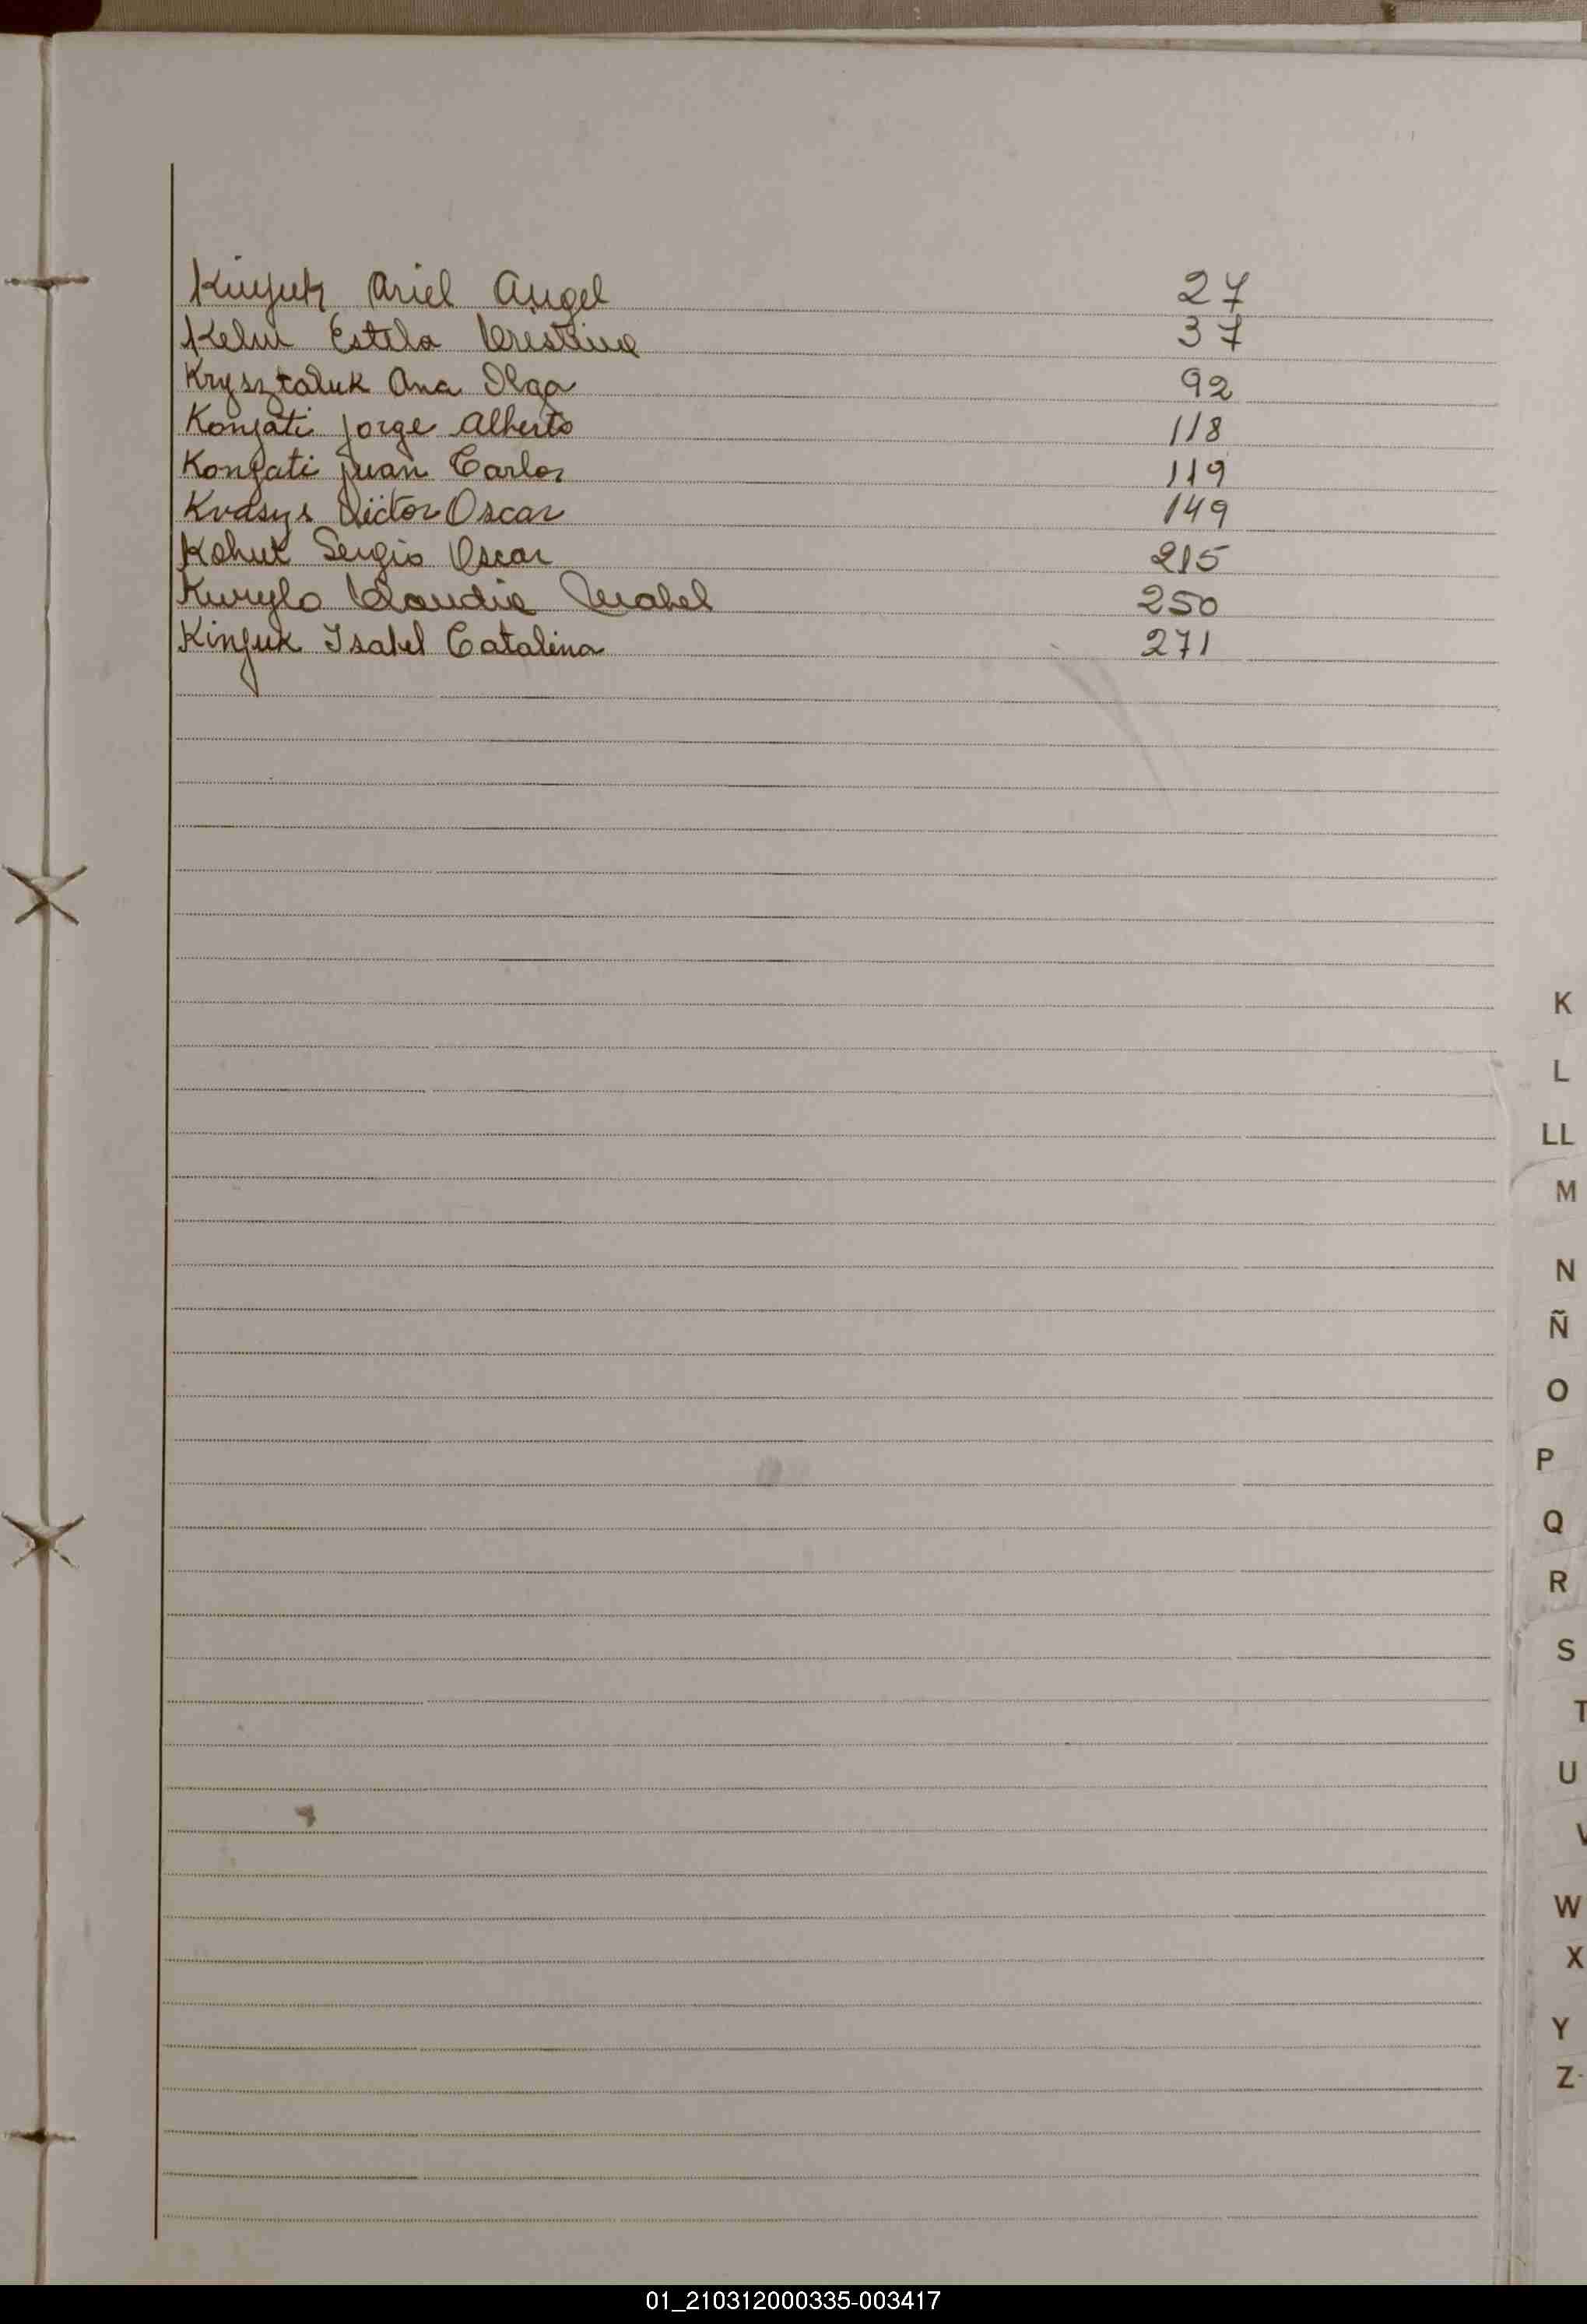 Kinjuk Ariel Angel 27
Kelm Estela Cristina 37
Krysztaluk Ana Olga 92
Konzati Jorge Alberto 118
Konzati Juan Carlos 119
Kvasys Victor Oscar 149
Kohut Sergio Oscar 215
Kurylo Claudia Mabel 250
Kinjuk Isabel Catalina 271
K
L
LL
M
N
Ñ
O
P
Q
R
S
T
U
V
W
X
Y
Z
01_210312000335-003417